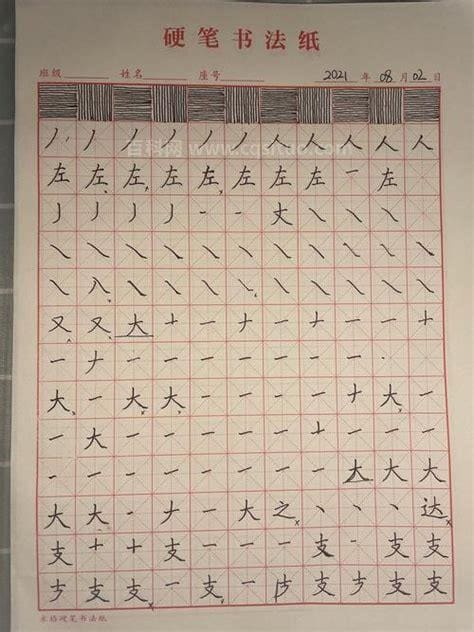 硬笔书法纸
班级 姓名 座号 2021 年 08 月 02 日
百科网 www.cqsituo.com
丿 丿 丿 丿 丿 丿 人 人 人 人 人
左 左 左 左 左 左 左 左 一 左
丿 丿 丿 丿 一 一 丈 ㇏ ㇏ ㇏ ㇏
㇏ ㇏ ㇏ ㇏ ㇏ ㇏ ㇏ ㇏ ㇏ ㇏ ㇏
㇏ 八 ㇏ ㇏ ㇏ ㇏ ㇏ ㇏ ㇏ ㇏ ㇏
又 又 大 十 一 十 一 十 一 一 十
一 ナ 一 一 一 一 一 一 一 一
大 一 大 大 一 一 一 一 十 大 一
一 大 一 一 一 一 一 十 一 一 一
一 一 一 一 一 一 一 一 大 大 大
大 大 一 ナ 一 大 之 丶 丶 丶 达
支 十 十 支 一 一 一 支 一 支 支
支 支 一 支 一 支 支 支 支
米格硬笔书法纸